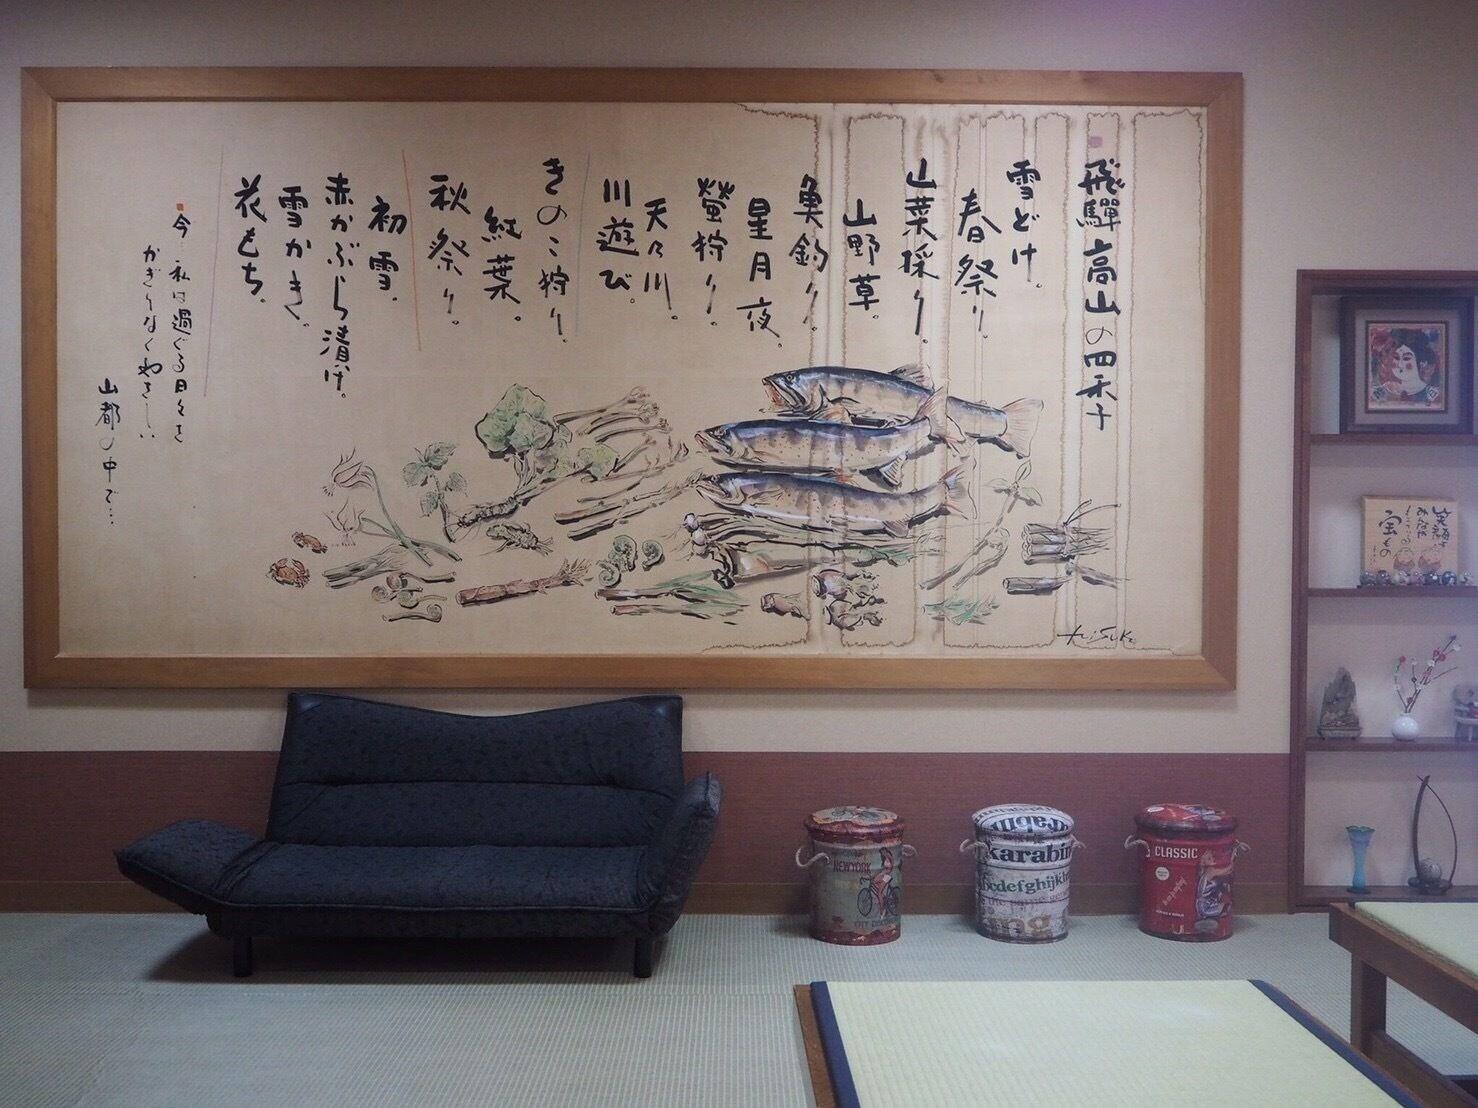 飛騨高山の四季
雪どけ。
春祭り。
山菜採り。
山野草。
魚釣り。
星月夜。
螢狩り。
天の川。
川遊び。
きのこ狩り。
紅葉。
秋祭り。
初雪。
赤かぶら漬け。
雪かき。
花もち。
今、私は過ぐる日々を
かぎりなく
山都の中で…
NEWYORK
karabin
bcdefghijkh
CLASSIC
宝もの